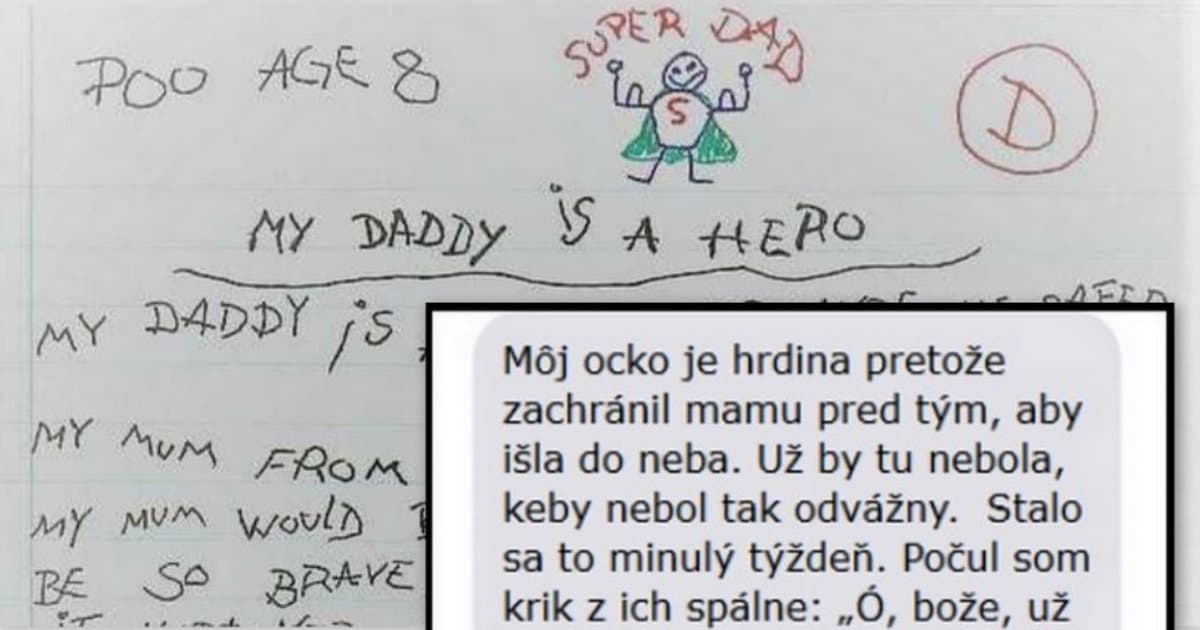 POO AGE 8
SUPER DAD
S
D
MY DADDY iS A HERO
MY DADDY iS
MY MUM FROM
MY MUM WOULD
BE SO BRAVE
Môj ocko je hrdina pretože
zachránil mamu pred tým, aby
išla do neba. Už by tu nebola,
keby nebol tak odvážny. Stalo
sa to minulý týždeň. Počul som
krik z ich spálne: „Ó, bože, už